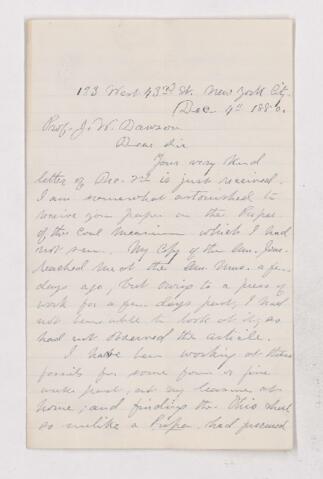 133 West 43rd St. New York City.
Dec 4th 1880.
Prof. J. W. Dawson
Dear Sir
Your very kind
letter of Dec. 2nd is just received.
I am somewhat astonished to
receive your paper on the Pupas
of the Coal Measures which I had
not seen. My copy of the Am. Jour.
reached me at the Am. Mus. a few
days ago, but owing to a press of
work for a few days past, I had
not been able to look at it, so
had not observed the article.
I have been working at these
fossils for some four or five
weeks past, at my leisure at
home; and finding the Ohio shell
so unlike a Pupa, had